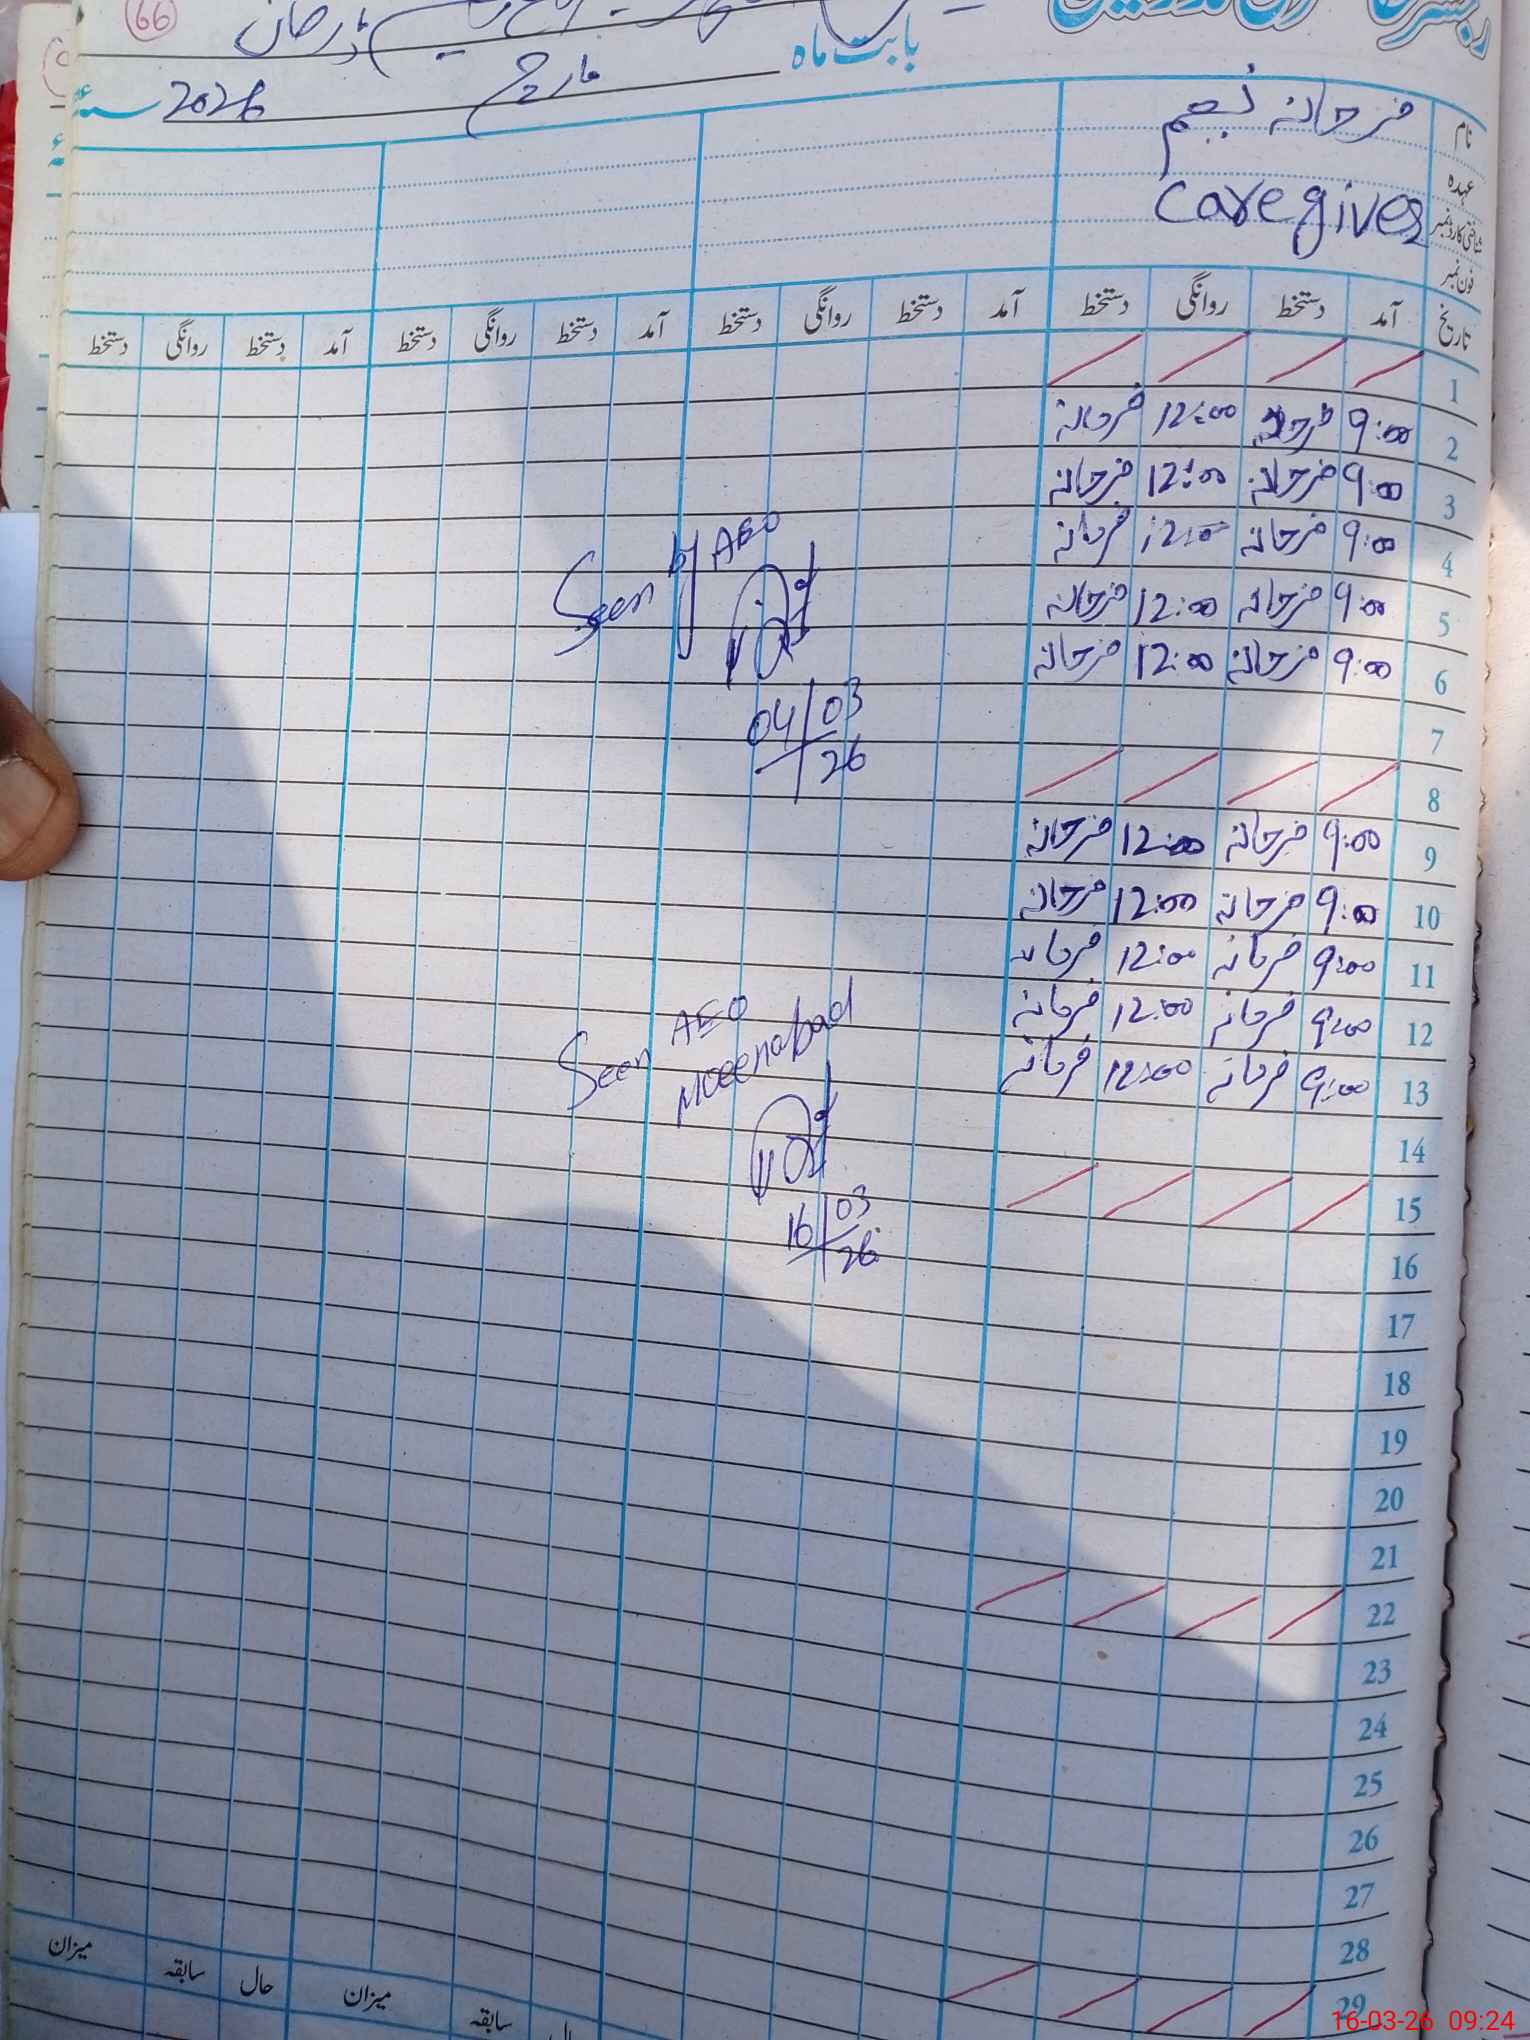 66
بابت ماہ مارچ 2026
نام فرحانہ نجم
عہدہ
شناختی کارڈ نمبر Caregiver
فون نمبر
تاریخ آمد دستخط روانگی دستخط آمد دستخط روانگی دستخط آمد دستخط روانگی دستخط آمد دستخط روانگی دستخط
1
2 9:00 فرحانہ 12:00 فرحانہ
3 9:00 فرحانہ 12:00 فرحانہ
4 9:00 فرحانہ 12:00 فرحانہ
5 9:00 فرحانہ 12:00 فرحانہ
6 9:00 فرحانہ 12:00 فرحانہ
7
8
9 9:00 فرحانہ 12:00 فرحانہ
10 9:00 فرحانہ 12:00 فرحانہ
11 9:00 فرحانہ 12:00 فرحانہ
12 9:00 فرحانہ 12:00 فرحانہ
13 9:00 فرحانہ 12:00 فرحانہ
14
15
16
17
18
19
20
21
22
23
24
25
26
27
28
29
Seen by AEO
04/03
26
Seen AEO
Moeenabad
16/03
26
میزان سابقہ حال میزان سابقہ
16-03-26 09:24